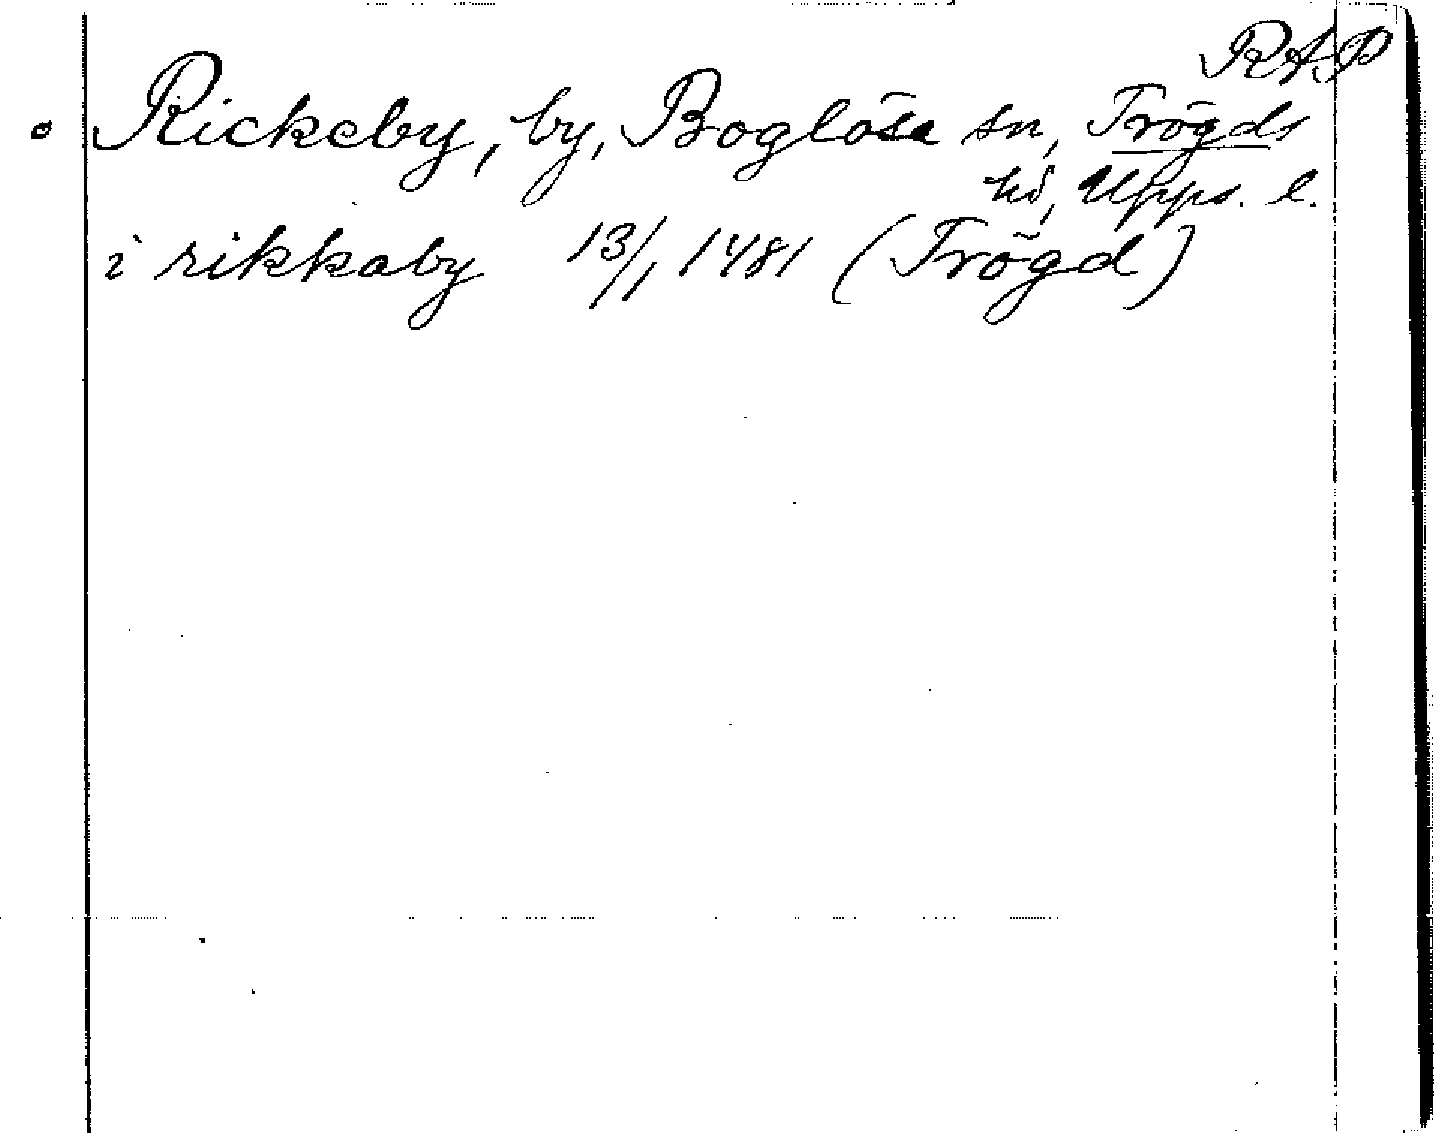 RAP
Rickeby, by, Boglösa sn, Trögds
hd, Upps. l.
i rikkaby 13/1 1481 (Trögd)